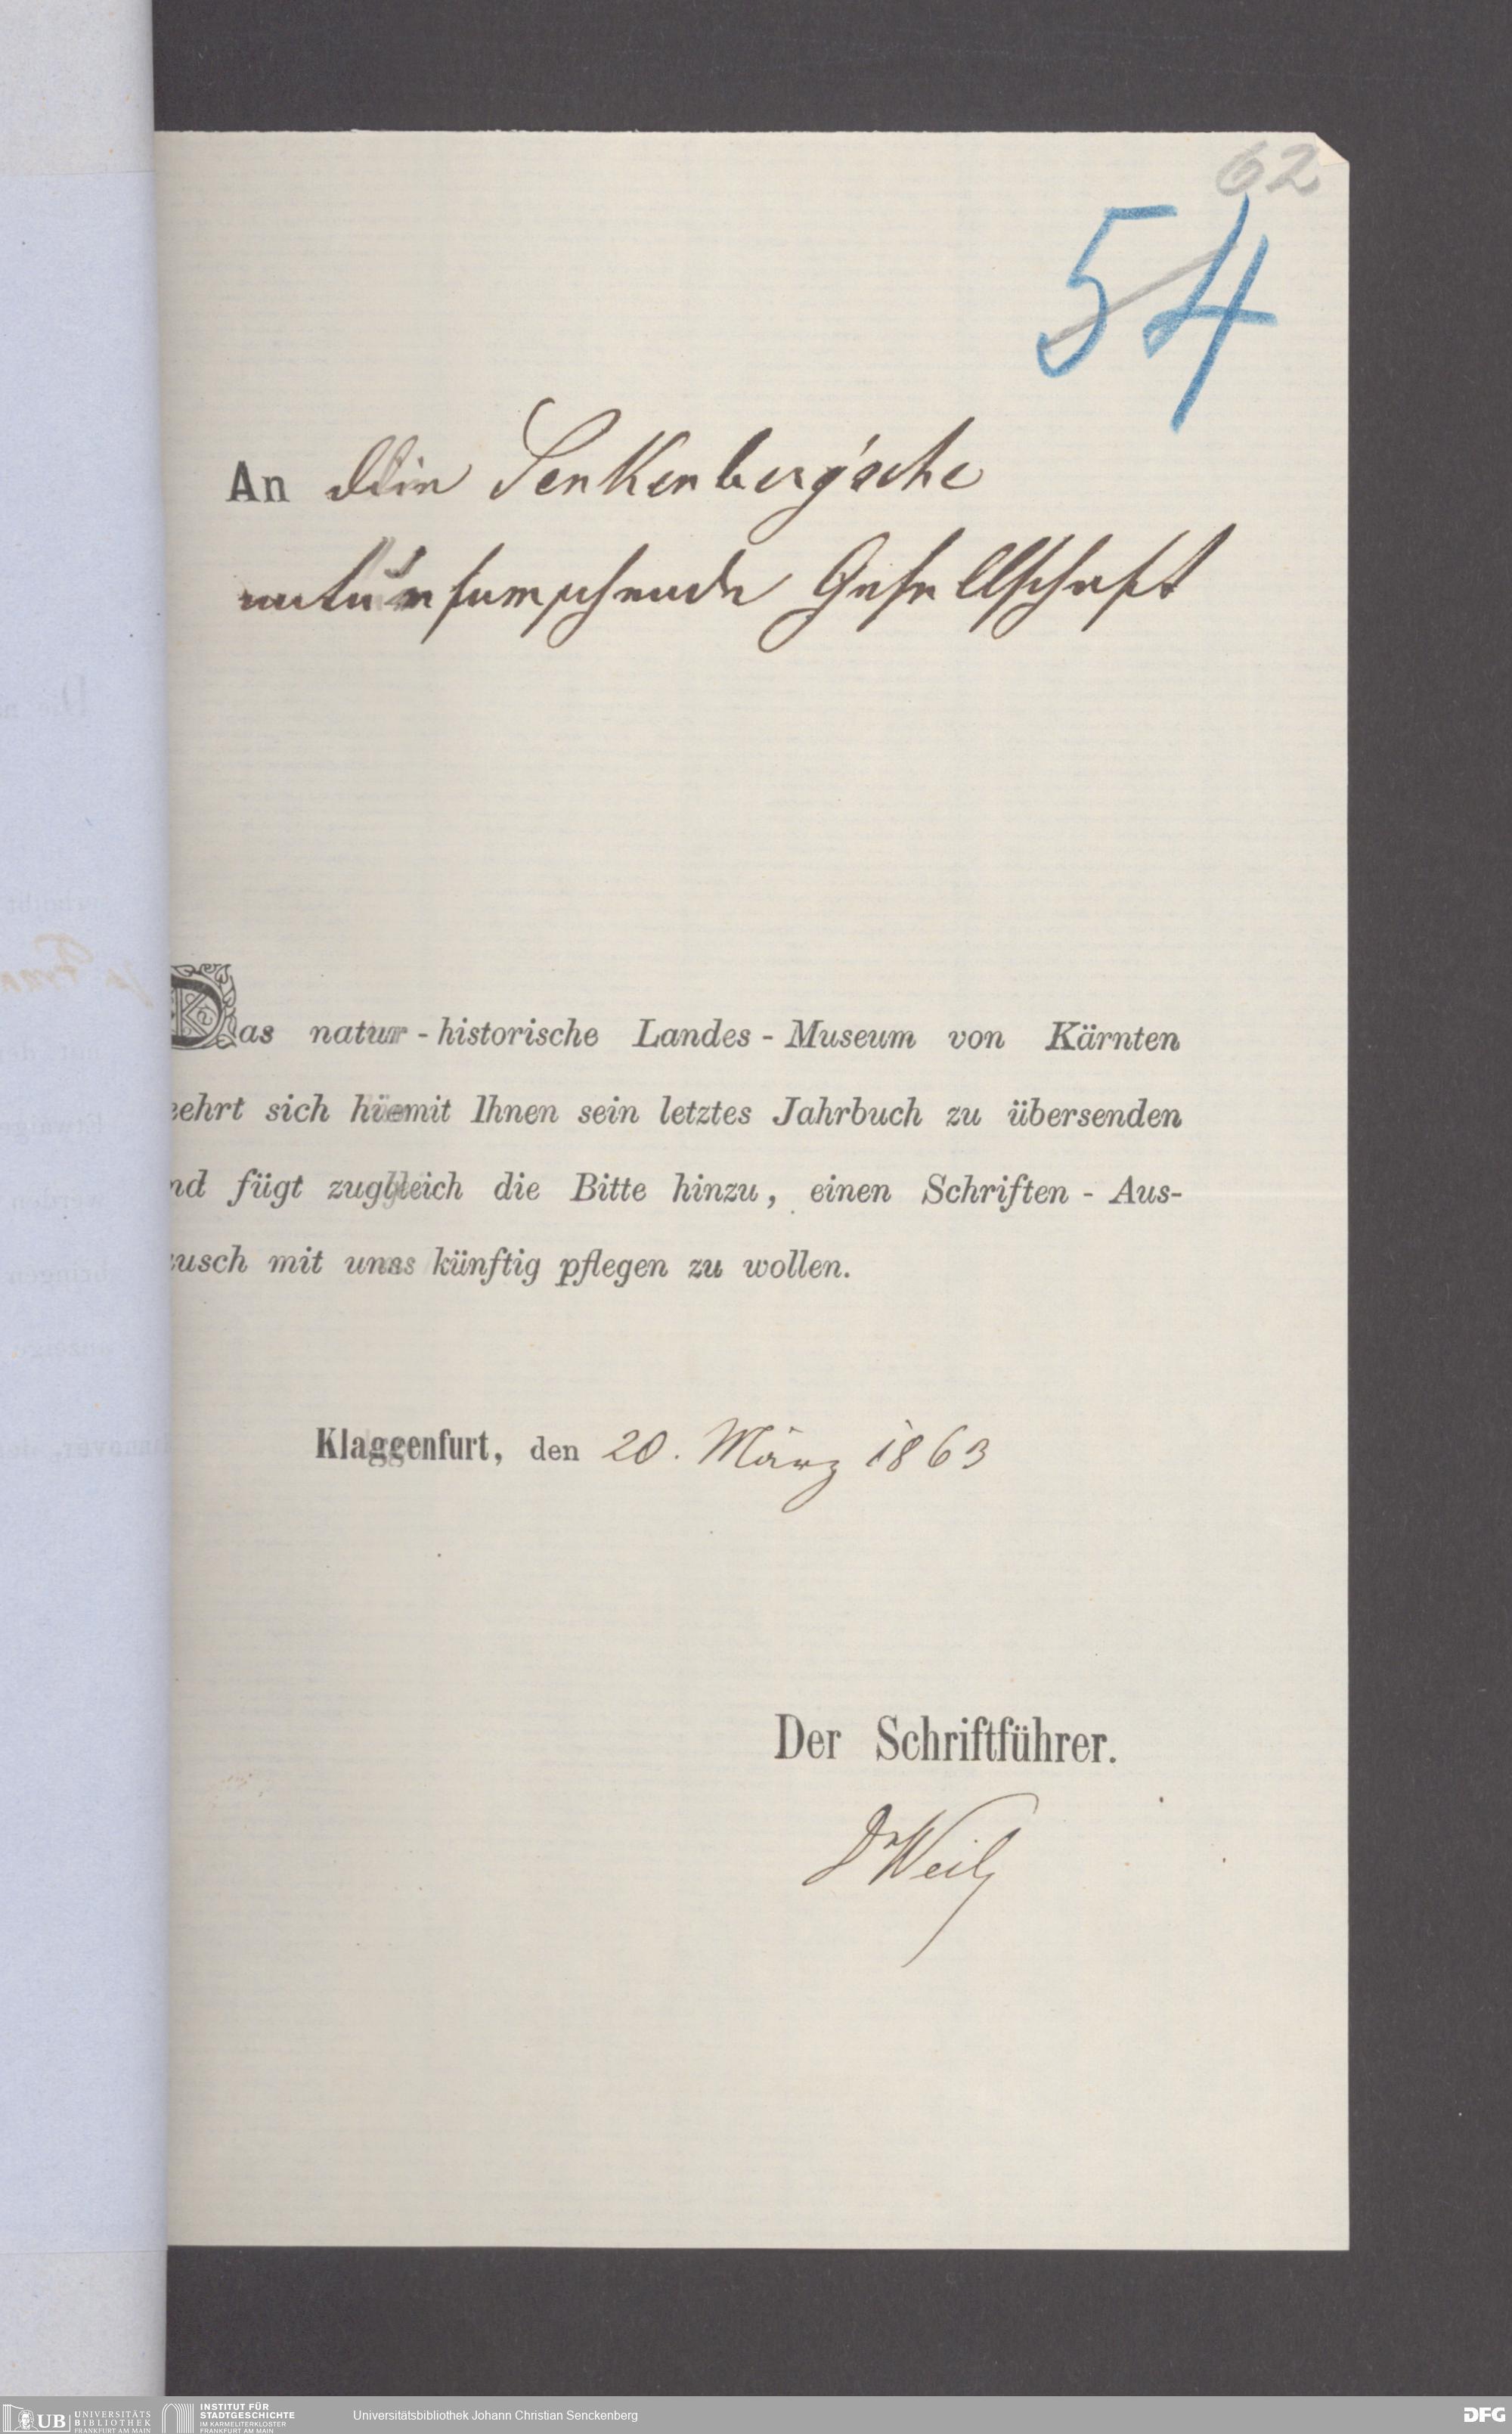 62
54
An die Senkenberg'sche
naturforschende Gesellschaft
Das natur-historische Landes-Museum von Kärnten
eehrt sich hiemit Ihnen sein letztes Jahrbuch zu übersenden
nd fügt zugleich die Bitte hinzu, einen Schriften-Aus-
usch mit uns künftig pflegen zu wollen.
Klagenfurt, den 20. März 1863
Der Schriftführer.
Dr Weil
UB UNIVERSITÄTS BIBLIOTHEK FRANKFURT AM MAIN
INSTITUT FÜR STADTGESCHICHTE IM KARMELITERKLOSTER FRANKFURT AM MAIN
Universitätsbibliothek Johann Christian Senckenberg
DFG